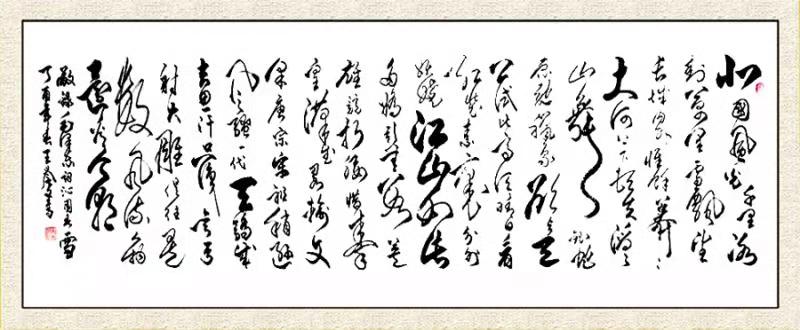 北國風光千里冰
封萬里雪飄望
长城内外惟餘莽〻
大河上下顿失滔〻
山舞銀蛇
原驰蠟象欲与天
公试比高须晴日看
红装素裹分外
妖娆江山如此
多嬌引无数英
雄競折腰惜秦
皇漢武略输文
采唐宗宋祖稍逊
风骚一代天驕成
吉思汗只識弯弓
射大雕俱往矣
数风流人物
还看今朝
敬录毛泽东词沁园春雪
丁酉年春王书